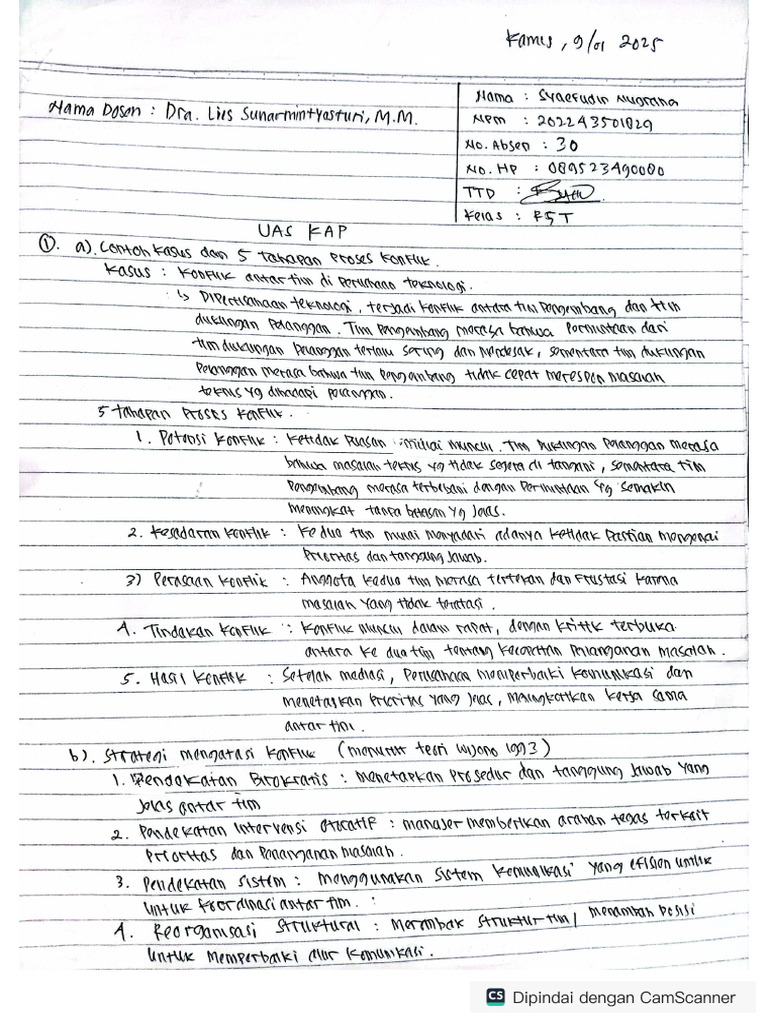 Kamis, 9/01 2025
Nama Dosen : Dra. Lies Sunarmintyasturi, M.M.
Nama : Syaefudin Nugraha
NPM : 202243501829
No. Absen : 30
No. HP : 089523490080
TTD :
Kelas : R5T
UAS KAP
①. a). Contoh kasus dan 5 tahapan Proses Konflik.
Kasus : Konflik antar tim di perusahaan teknologi.
↳ Diperusahaan teknologi, terjadi konflik antara tim pengembang dan tim
dukungan pelanggan. Tim pengembang merasa bahwa permintaan dari
tim dukungan pelanggan terlalu sering dan mendesak, sementara tim dukungan
pelanggan merasa bahwa tim pengembang tidak cepat merespon masalah
teknis yg dihadapi pelanggan.
5 tahapan Proses Konflik.
1. Potensi Konflik : Ketidak Puasan mulai muncul. Tim dukungan pelanggan merasa
bahwa masalah teknis yg tidak segera di tangani, sementara tim
pengembang merasa terbebani dengan permintaan yg semakin
meningkat tanpa batasan yg jelas.
2. Kesadaran Konflik : Kedua tim mulai menyadari adanya ketidak pastian mengenai
prioritas dan tanggung jawab.
3) Perasaan Konflik : Anggota kedua tim merasa tertekan dan frustasi karena
masalah yang tidak teratasi.
4. Tindakan Konflik : Konflik muncul dalam rapat, dengan kritik terbuka
antara ke dua tim tentang kecepatan penanganan masalah.
5. Hasil Konflik : Setelah mediasi, perusahaan memperbaiki komunikasi dan
menetapkan prioritas yang jelas, meningkatkan kerja sama
antar tim.
b). Strategi mengatasi konflik (menurut teori wijono 1993)
1. Pendekatan Birokratis : menetapkan prosedur dan tanggung jawab yang
jelas antar tim
2. Pendekatan Intervensi otoratif : manajer memberikan arahan tegas terkait
prioritas dan penanganan masalah.
3. Pendekatan Sistem : menggunakan sistem komunikasi yang efisien untuk
untuk koordinasi antar tim.
4. Reorganisasi Struktural : merombak struktur tim / menambah posisi
untuk memperbaiki alur komunikasi.
CS Dipindai dengan CamScanner